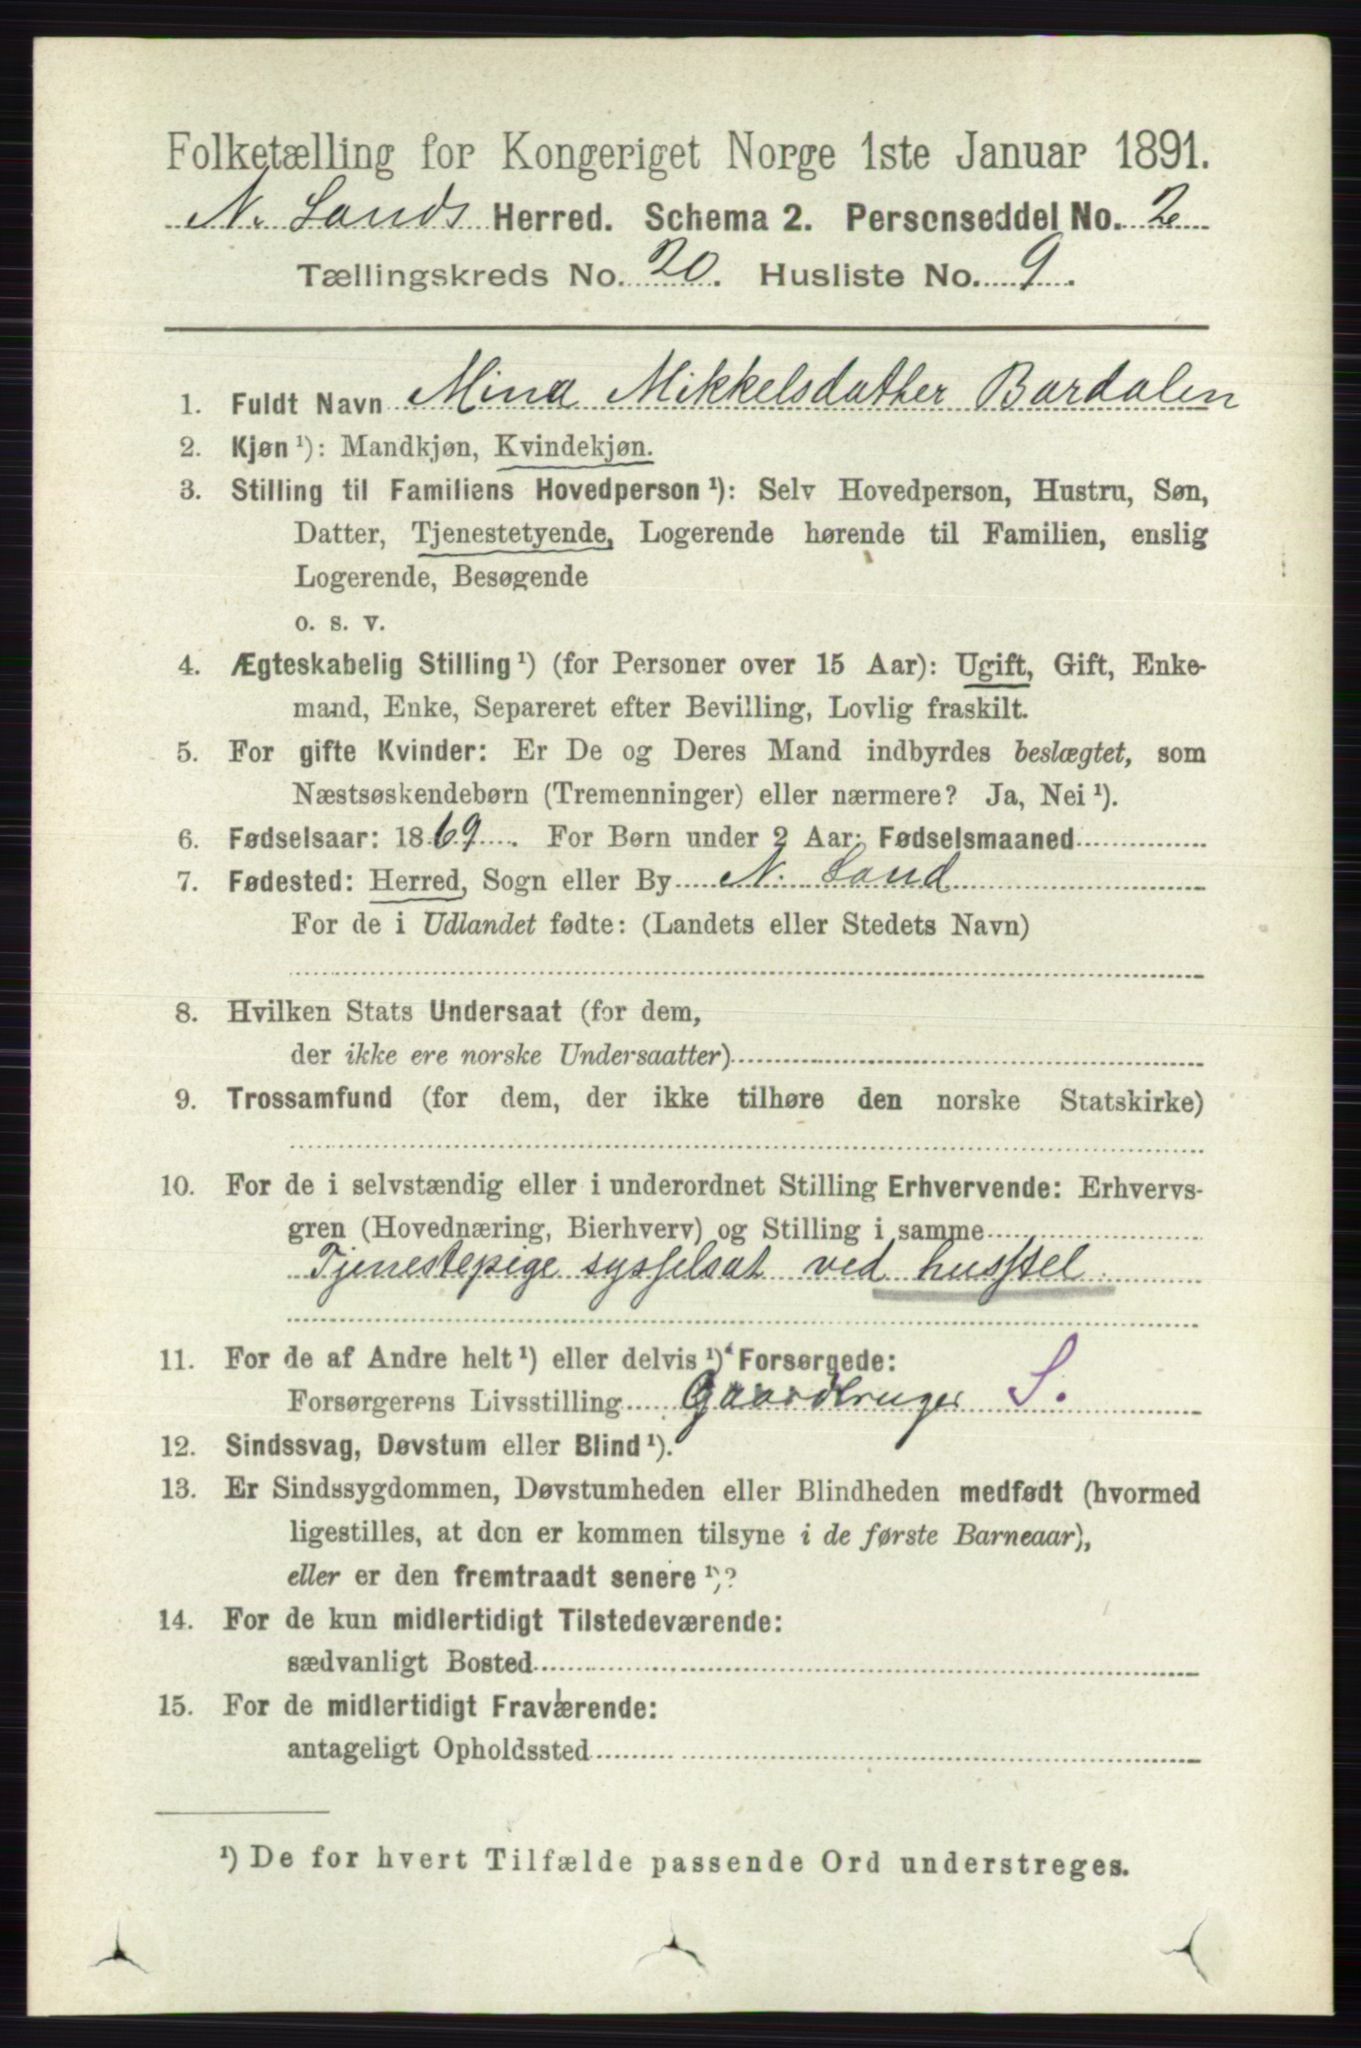 Folketælling for Kongeriget Norge 1ste Januar 1891.
N. Lands Herred. Schema 2. Personseddel No. 2
Tællingskreds No. 20. Husliste No. 9.
1. Fuldt Navn Mina Mikkelsdatter Bardalen
2. Kjøn ¹): Mandkjøn, Kvindekjøn.
3. Stilling til Familiens Hovedperson ¹): Selv Hovedperson, Hustru, Søn,
Datter, Tjenestetyende, Logerende hørende til Familien, enslig
Logerende, Besøgende
o. s. v.
4. Ægteskabelig Stilling ¹) (for Personer over 15 Aar): Ugift, Gift, Enke-
mand, Enke, Separeret efter Bevilling, Lovlig fraskilt.
5. For gifte Kvinder: Er De og Deres Mand indbyrdes beslægtet, som
Næstsøskendebørn (Tremenninger) eller nærmere? Ja, Nei ¹).
6. Fødselsaar: 1869. For Børn under 2 Aar: Fødselsmaaned
7. Fødested: Herred, Sogn eller By N. Land
For de i Udlandet fødte: (Landets eller Stedets Navn)
8. Hvilken Stats Undersaat (for dem,
der ikke ere norske Undersaatter)
9. Trossamfund (for dem, der ikke tilhøre den norske Statskirke)
10. For de i selvstændig eller i underordnet Stilling Erhvervende: Erhvervs-
gren (Hovednæring, Bierhverv) og Stilling i samme
Tjenestepige sysselsat ved husstel
11. For de af Andre helt ¹) eller delvis ¹) Forsørgede:
Forsørgerens Livsstilling Gaardbruger S.
12. Sindssvag, Døvstum eller Blind ¹).
13. Er Sindssygdommen, Døvstumheden eller Blindheden medfødt (hvormed
ligestilles, at den er kommen tilsyne i de første Barneaar),
eller er den fremtraadt senere ¹)?
14. For de kun midlertidigt Tilstedeværende:
sædvanligt Bosted
15. For de midlertidigt Fraværende:
antageligt Opholdssted
¹) De for hvert Tilfælde passende Ord understreges.